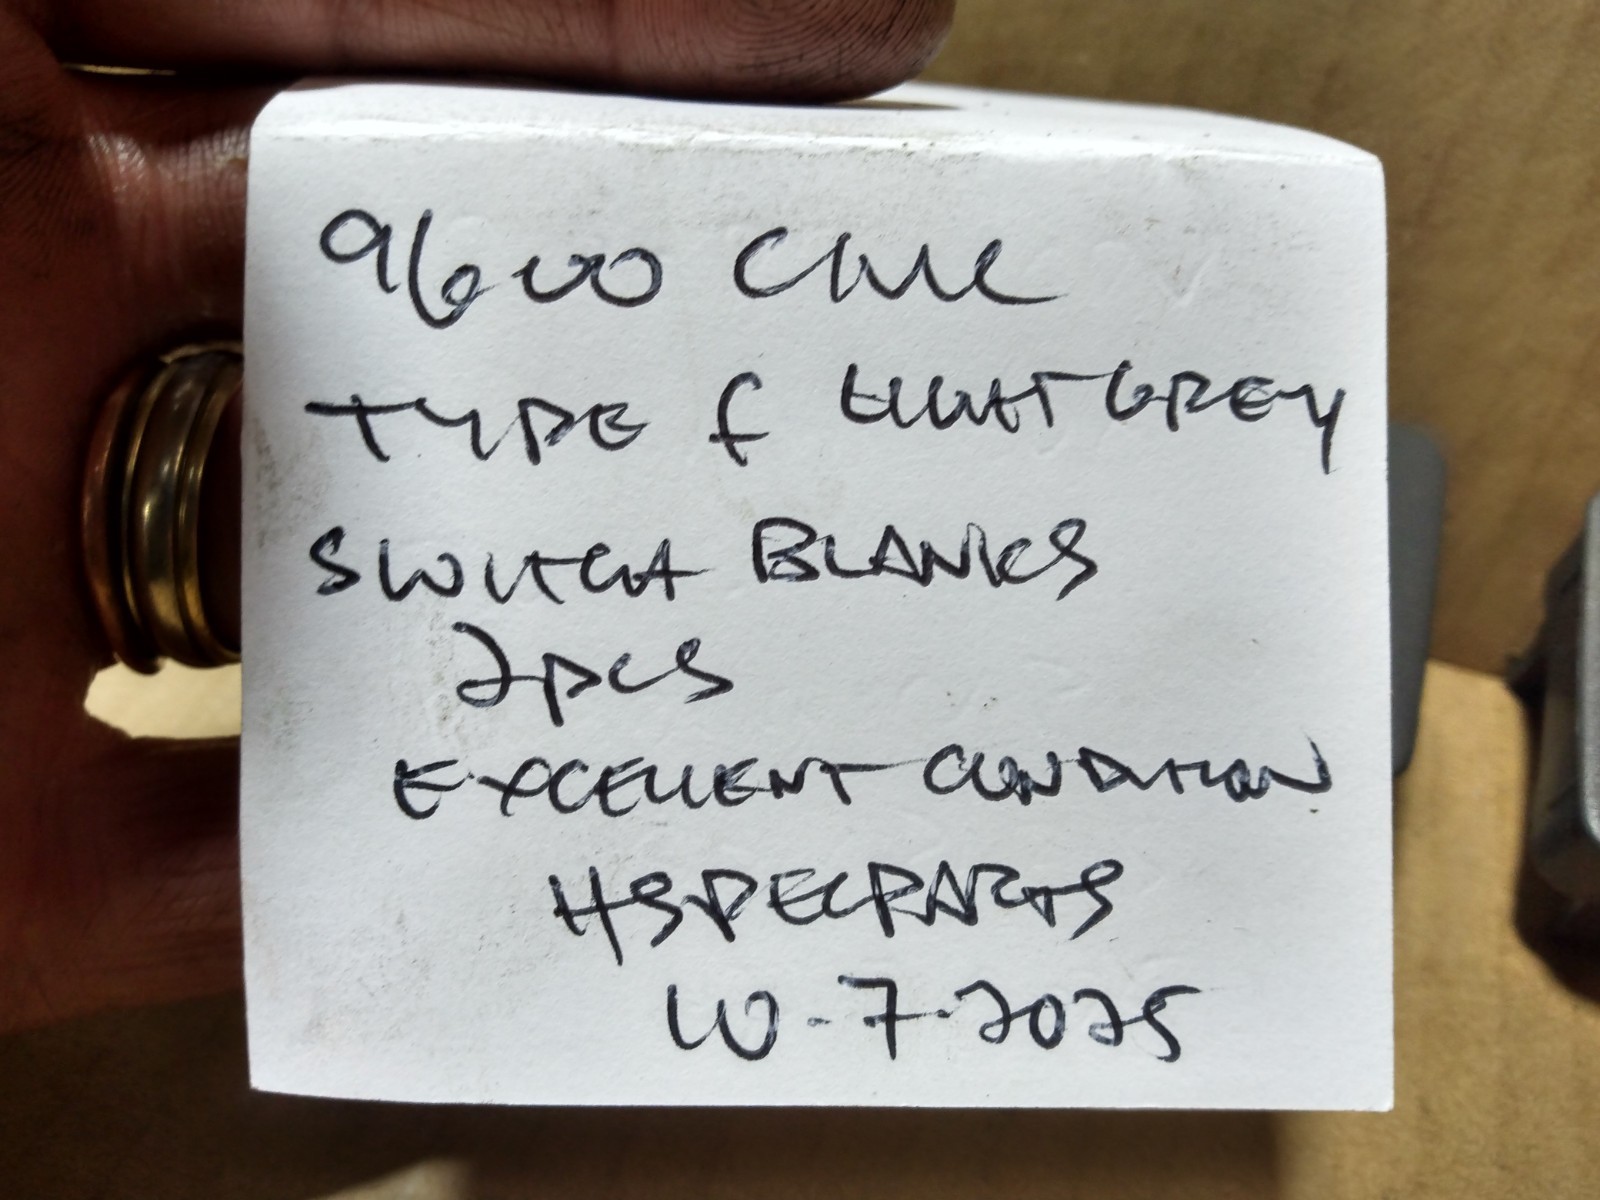 9600 Civic
TYPE f LIGHT GREY
SWITCH BLANKS
2pcs
EXCELLENT CONDITION
HSPECPARTS
10-7-2025